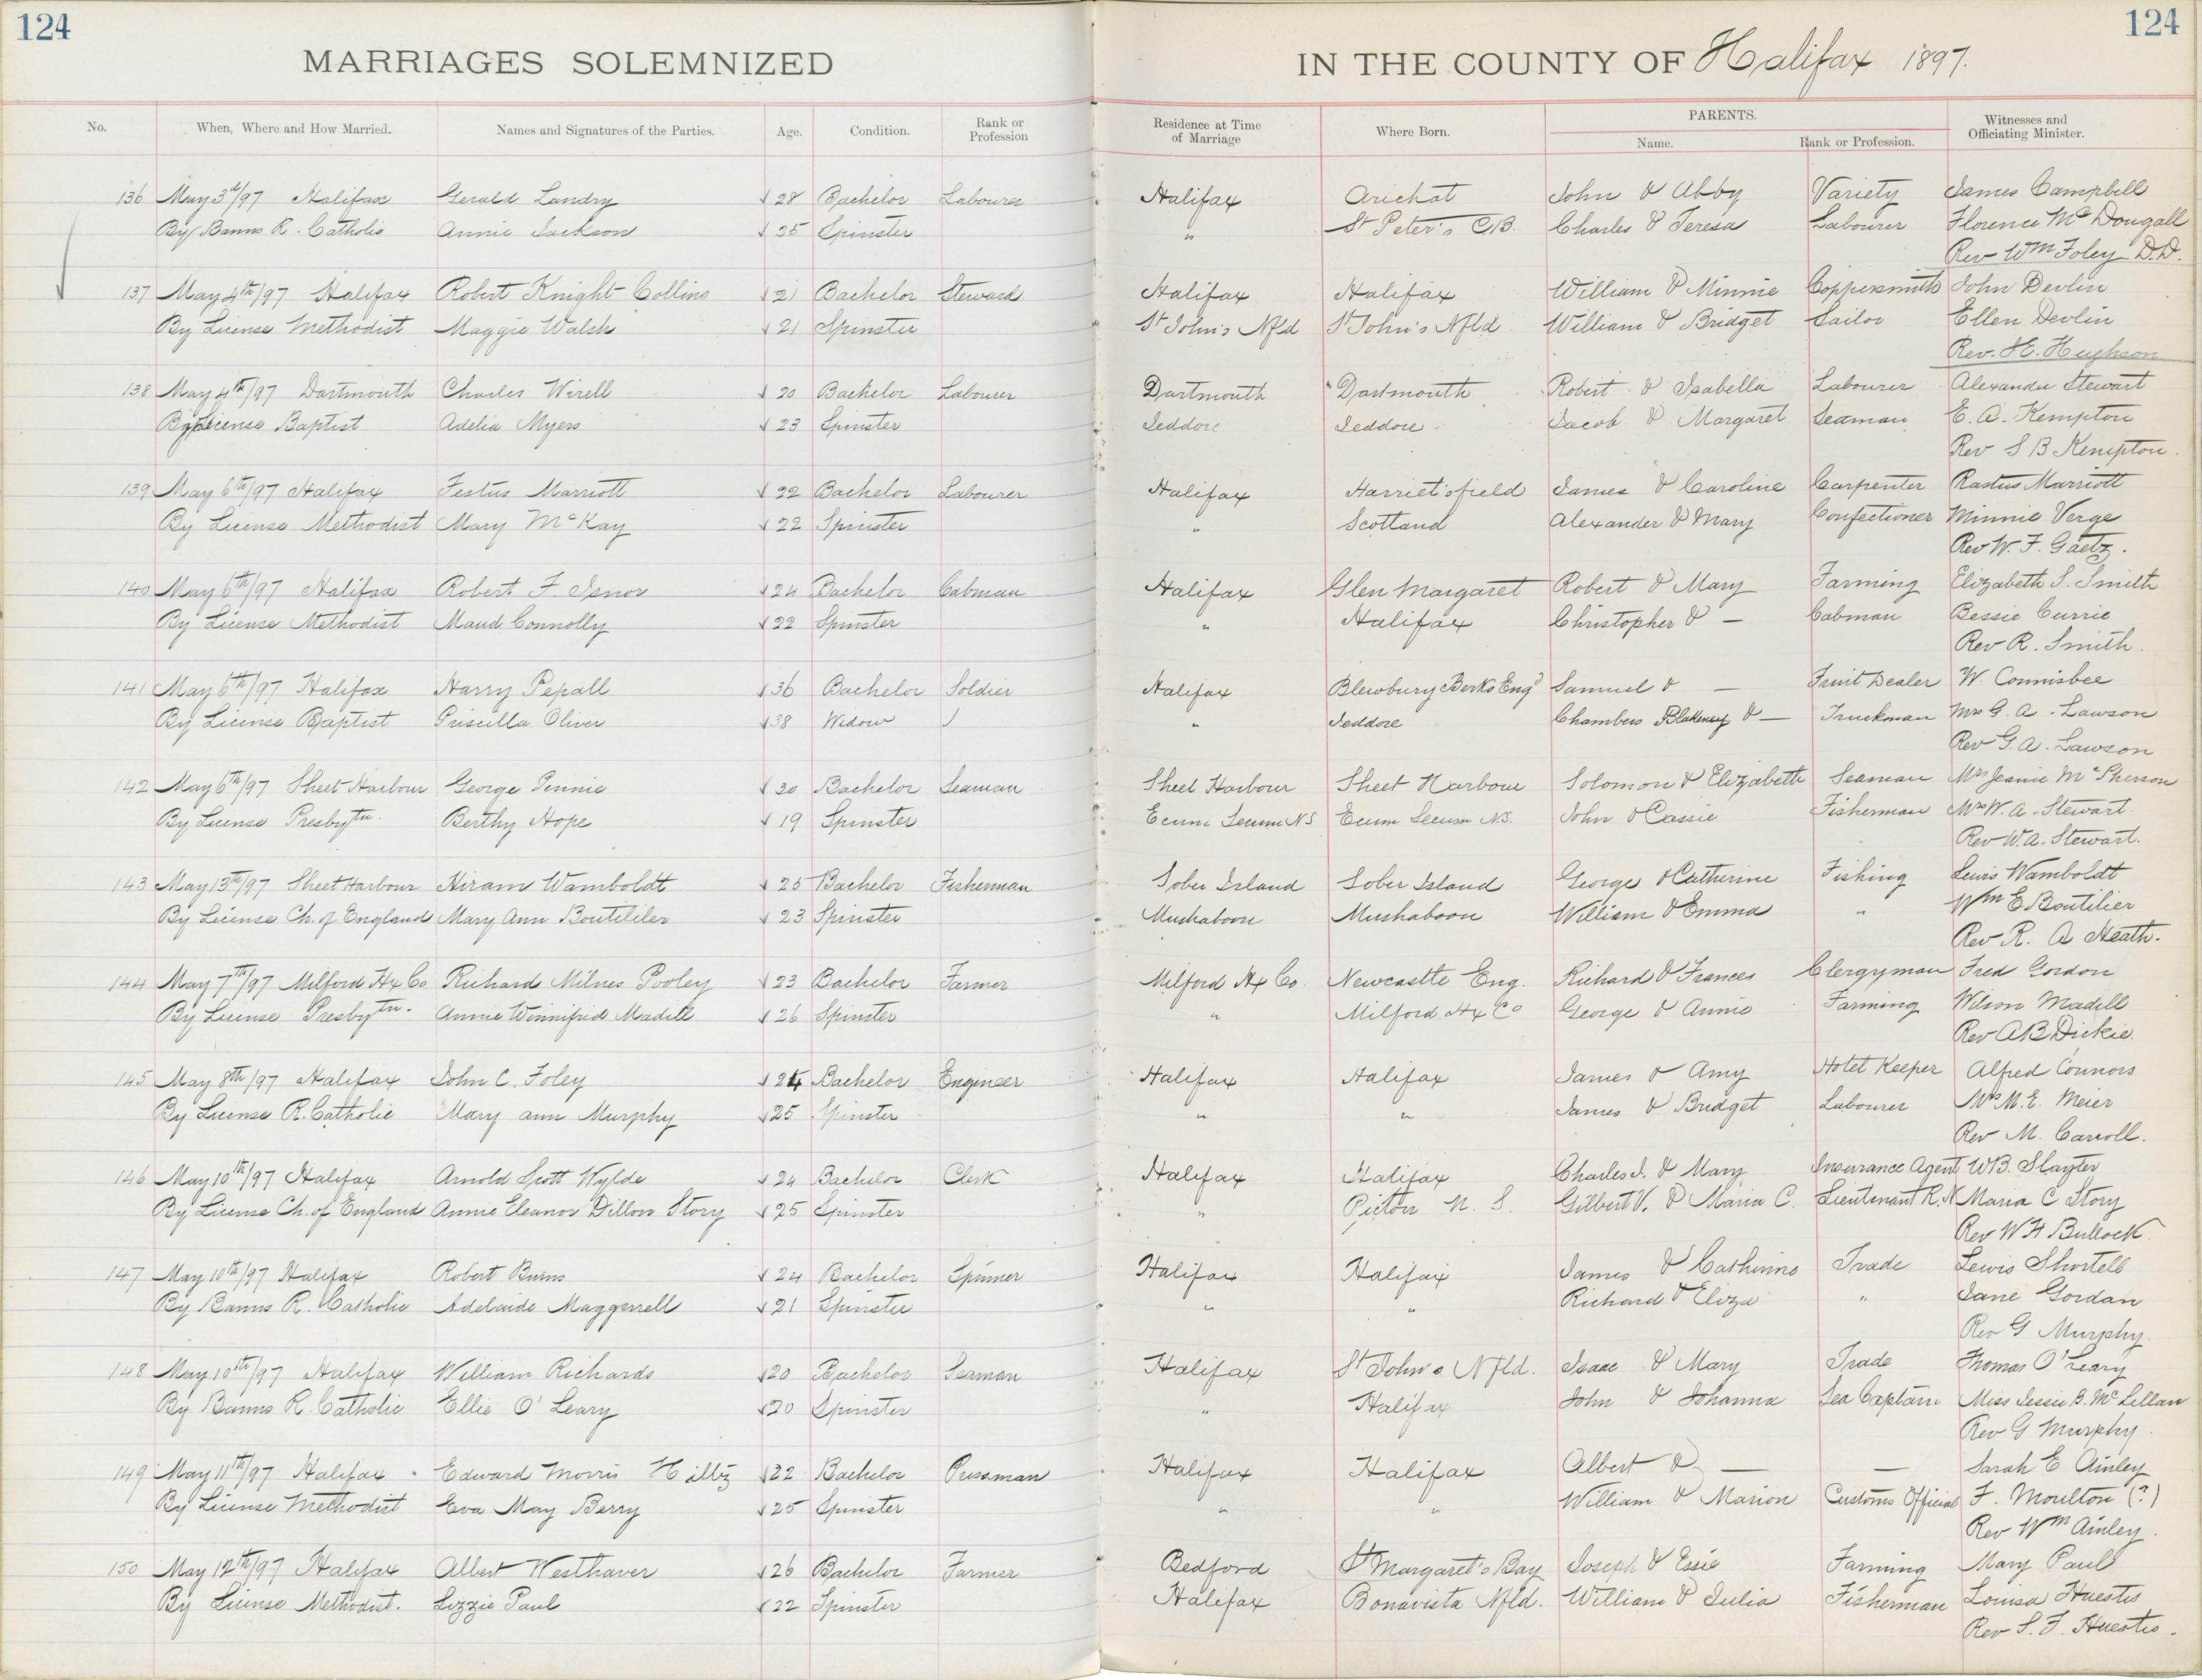 124
124
MARRIAGES SOLEMNIZED IN THE COUNTY OF Halifax 1897.
No. When, Where and How Married. Names and Signatures of the Parties. Age. Condition. Rank or Profession Residence at Time of Marriage Where Born. PARENTS. Name. Rank or Profession. Witnesses and Officiating Minister.
136 May 3d/97 Halifax Gerald Landry 28 Bachelor Labourer Halifax Arichat John & Abby Variety James Campbell
By Banns R. Catholic Annie Jackson 35 Spinster " St Peter's C.B. Charles & Teresa Labourer Florence McDougall
Rev Wm Foley D.D.
137 May 4th/97 Halifax Robert Knight Collins 21 Bachelor Steward Halifax Halifax William & Minnie Coppersmith John Devlin
By License Methodist Maggie Walsh 21 Spinster St John's Nfld St John's Nfld William & Bridget Sailor Ellen Devlin
Rev. H. Hughson
138 May 4th/97 Dartmouth Charles Wirell 20 Bachelor Labourer Dartmouth Dartmouth Robert & Isabella Labourer Alexander Stewart
By License Baptist Adelia Myers 23 Spinster Jeddore Jeddore Jacob & Margaret Seaman E. A. Kempton
Rev S B Kempton.
139 May 6th/97 Halifax Festus Marriott 22 Bachelor Labourer Halifax Harriet'sfield James & Caroline Carpenter Rastus Marriott
By License Methodist Mary McKay 22 Spinster " Scotland Alexander & Mary Confectioner Minnie Verge
Rev W. F. Gaetz.
140 May 6th/97 Halifax Robert F Isnor 24 Bachelor Cabman Halifax Glen Margaret Robert & Mary Farming Elizabeth S. Smith
By License Methodist Maud Connolly 22 Spinster " Halifax Christopher & — Cabman Bessie Currie
Rev R. Smith.
141 May 6th/97 Halifax Harry Pepall 36 Bachelor Soldier Halifax Blewbury Berks Engd Samuel & — Fruit Dealer W. Connisbee
By License Baptist Priscilla Oliver 38 Widow " Jeddore Chambers Blakeney & — Truckman Mrs G. A. Lawson
Rev G. A. Lawson
142 May 6th/97 Sheet Harbour George Pennie 30 Bachelor Seaman Sheet Harbour Sheet Harbour Solomon & Elizabeth Seaman Mrs Jeanie McPherson
By License Presbytn. Berthy Hope 19 Spinster Ecum Secum NS Ecum Secum N.S. John & Cassie Fisherman Mrs W. A. Stewart
Rev W. A. Stewart.
143 May 13th/97 Sheet Harbour Hiram Wamboldt 25 Bachelor Fisherman Sober Island Sober Island George & Catherine Fishing Lewis Wamboldt
By License Ch. of England Mary Ann Boutililer 23 Spinster Mushaboon Mushaboon William & Emma " Wm E Boutilier
Rev R. A Heath.
144 May 7th/97 Milford Hx Co Richard Milnes Pooley 23 Bachelor Farmer Milford Hx Co. Newcastle Eng. Richard & Frances Clergyman Fred Gordon
By License Presbytn. Annie Winnifred Madill 26 Spinster " Milford Hx Co George & Annie Farming Wilson Madill
Rev A B Dickie.
145 May 8th/97 Halifax John C. Foley 24 Bachelor Engineer Halifax Halifax James & Amy Hotel Keeper Alfred Connors
By License R. Catholic Mary Ann Murphy 25 Spinster " " James & Bridget Labourer Mrs M. E. Meier
Rev M. Carroll.
146 May 10th/97 Halifax Arnold Scott Wylde 24 Bachelor Clerk Halifax Halifax Charles J. & Mary Insurance Agent W B. Slayter
By License Ch. of England Annie Eleanor Dillon Story 25 Spinster " Pictou N. S. Gilbert V. & Maria C. Lieutenant R. N Maria C Story
Rev W H Bullock
147 May 10th/97 Halifax Robert Burns 24 Bachelor Spinner Halifax Halifax James & Catherine Trade Lewis Shortell
By Banns R. Catholic Adelaide Maggerrell 21 Spinster " " Richard & Eliza " Jane Gordan
Rev G Murphy.
148 May 10th/97 Halifax William Richards 20 Bachelor Seaman Halifax St John's Nfld. Isaac & Mary Trade Thomas O'Leary
By Banns R. Catholic Ellie O'Leary 20 Spinster " Halifax John & Johanna Sea Captain Miss Jessie B. McLellan
Rev G Murphy.
149 May 11th/97 Halifax Edward Morris Hiltz 22 Bachelor Pressman Halifax Halifax Albert & — — Sarah E Ainley
By License Methodist Eva May Berry 25 Spinster " " William & Marion Customs Official F. Moulton (?)
Rev Wm Ainley.
150 May 12th/97 Halifax Albert Westhaver 26 Bachelor Farmer Bedford St Margaret's Bay Joseph & Essie Farming Mary Paul
By License Methodist. Lizzie Paul 22 Spinster Halifax Bonavista Nfld. William & Julia Fisherman Louisa Huestis
Rev S. F. Huestis.